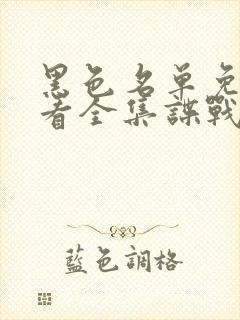 黑色名单免
看全集諜戰
藍色調格